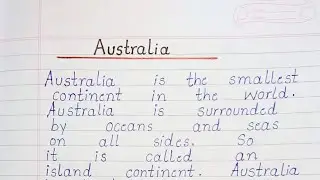 Australia
Australia is the smallest
continent in the world.
Australia is surrounded
by oceans and seas
on all sides. So
it is called an
island continent. Australia